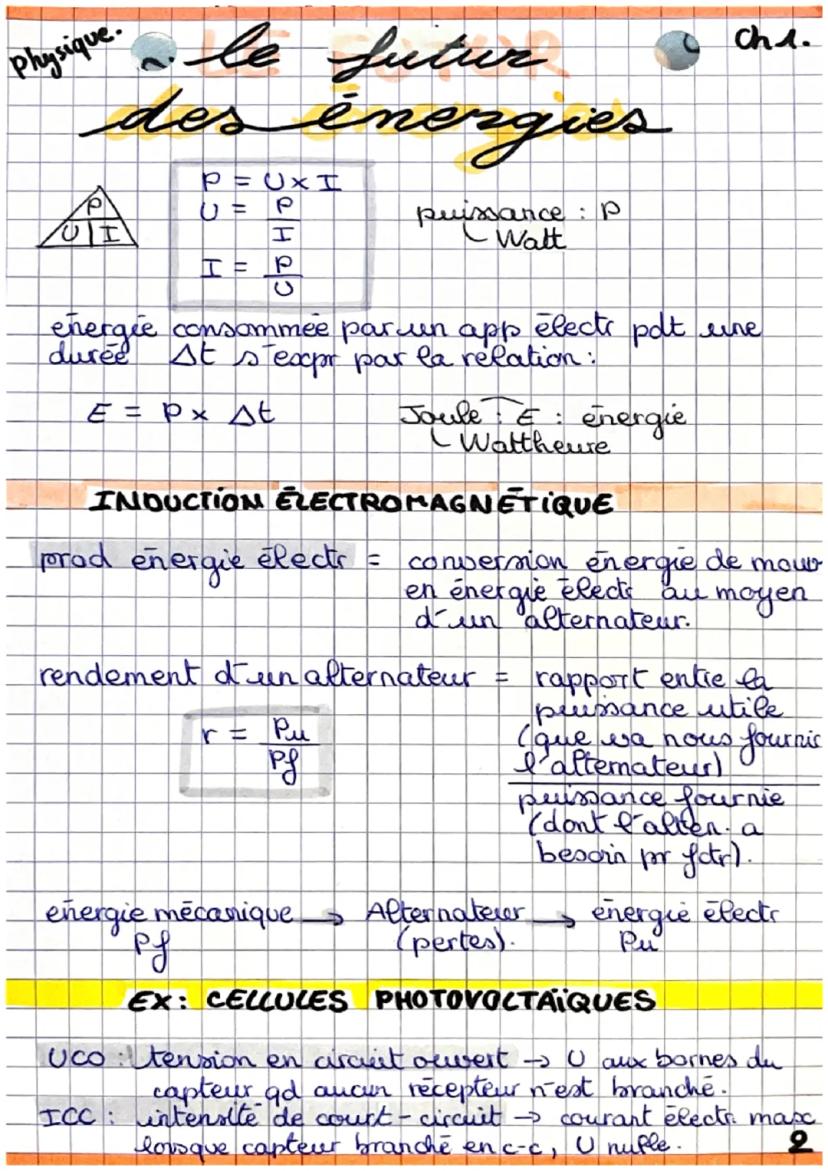 Physique.
Ch 1.
le futur
LE FUTUR
des énergies
P = U x I
U = P / I
I = P / U
P
U | I
puissance : P
Watt
énergie consommée par un app électr pdt une
durée Δt s'expr par la relation :
E = P x Δt
Joule : E : énergie
Wattheure
INDUCTION ÉLECTROMAGNÉTIQUE
prod énergie électr = conversion énergie de mouv
en énergie électr au moyen
d'un alternateur.
rendement d'un alternateur = rapport entre la
puissance utile
(que va nous fournir
l'alternateur)
puissance fournie
(dont l'alter. a
besoin pr fctr).
r = Pu / Pf
énergie mécanique → Alternateur → énergie électr
Pf (pertes). Pu
EX : CELLULES PHOTOVOLTAÏQUES
UCO : tension en circuit ouvert → U aux bornes du
capteur qd aucun récepteur n'est branché.
ICC : intensité de court-circuit → courant électr. max
lorsque capteur branché en c-c, U nulle.
2